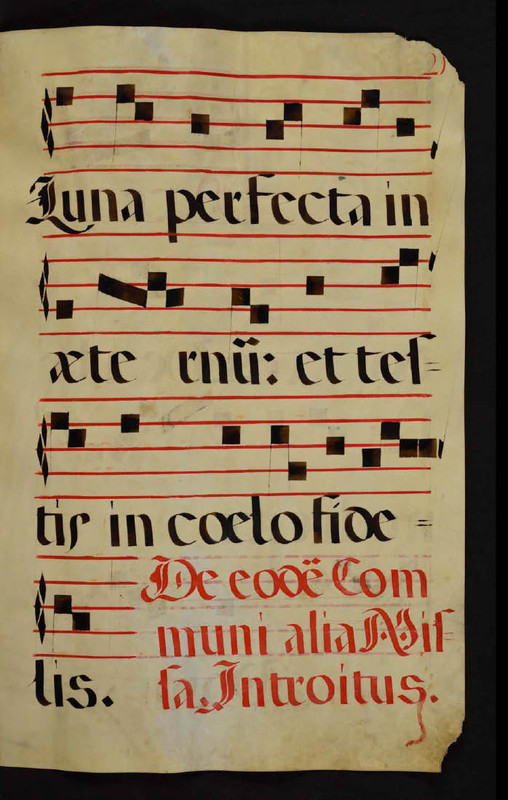 Luna perfecta in
æte rnű: et tes=
tis in cœlo fide =
lis.
De eodē Com
muni alia Mis=
sa. Introitus.